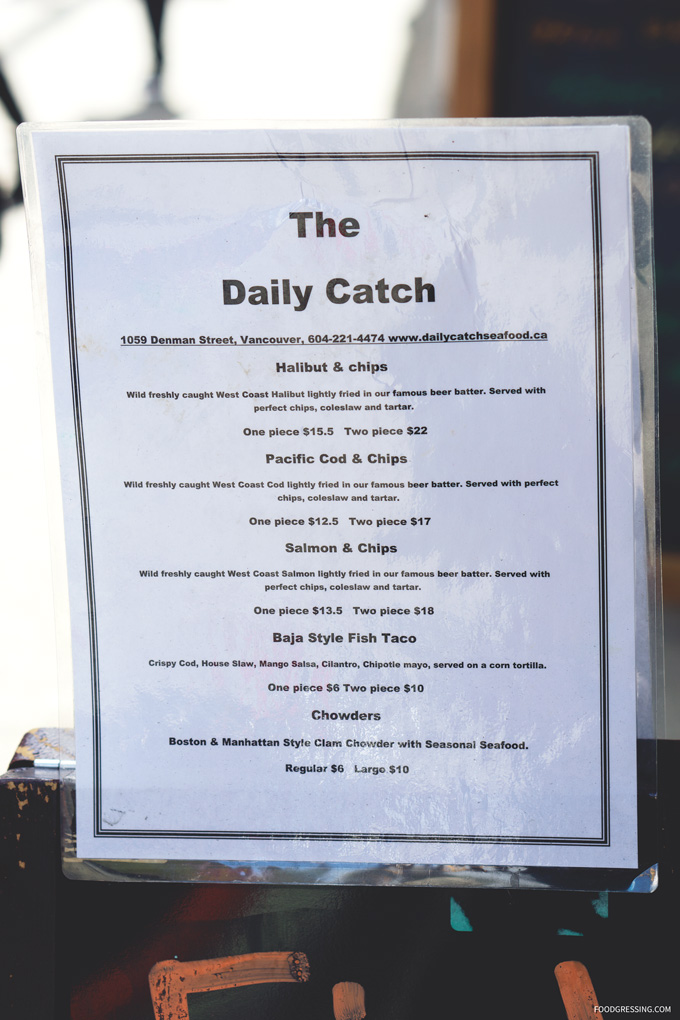 The
Daily Catch
1059 Denman Street, Vancouver, 604-221-4474 www.dailycatchseafood.ca
Halibut & chips
Wild freshly caught West Coast Halibut lightly fried in our famous beer batter. Served with
perfect chips, coleslaw and tartar.
One piece $15.5 Two piece $22
Pacific Cod & Chips
Wild freshly caught West Coast Cod lightly fried in our famous beer batter. Served with perfect
chips, coleslaw and tartar.
One piece $12.5 Two piece $17
Salmon & Chips
Wild freshly caught West Coast Salmon lightly fried in our famous beer batter. Served with
perfect chips, coleslaw and tartar.
One piece $13.5 Two piece $18
Baja Style Fish Taco
Crispy Cod, House Slaw, Mango Salsa, Cilantro, Chipotle mayo, served on a corn tortilla.
One piece $6 Two piece $10
Chowders
Boston & Manhattan Style Clam Chowder with Seasonal Seafood.
Regular $6 Large $10
FOODGRESSING.COM